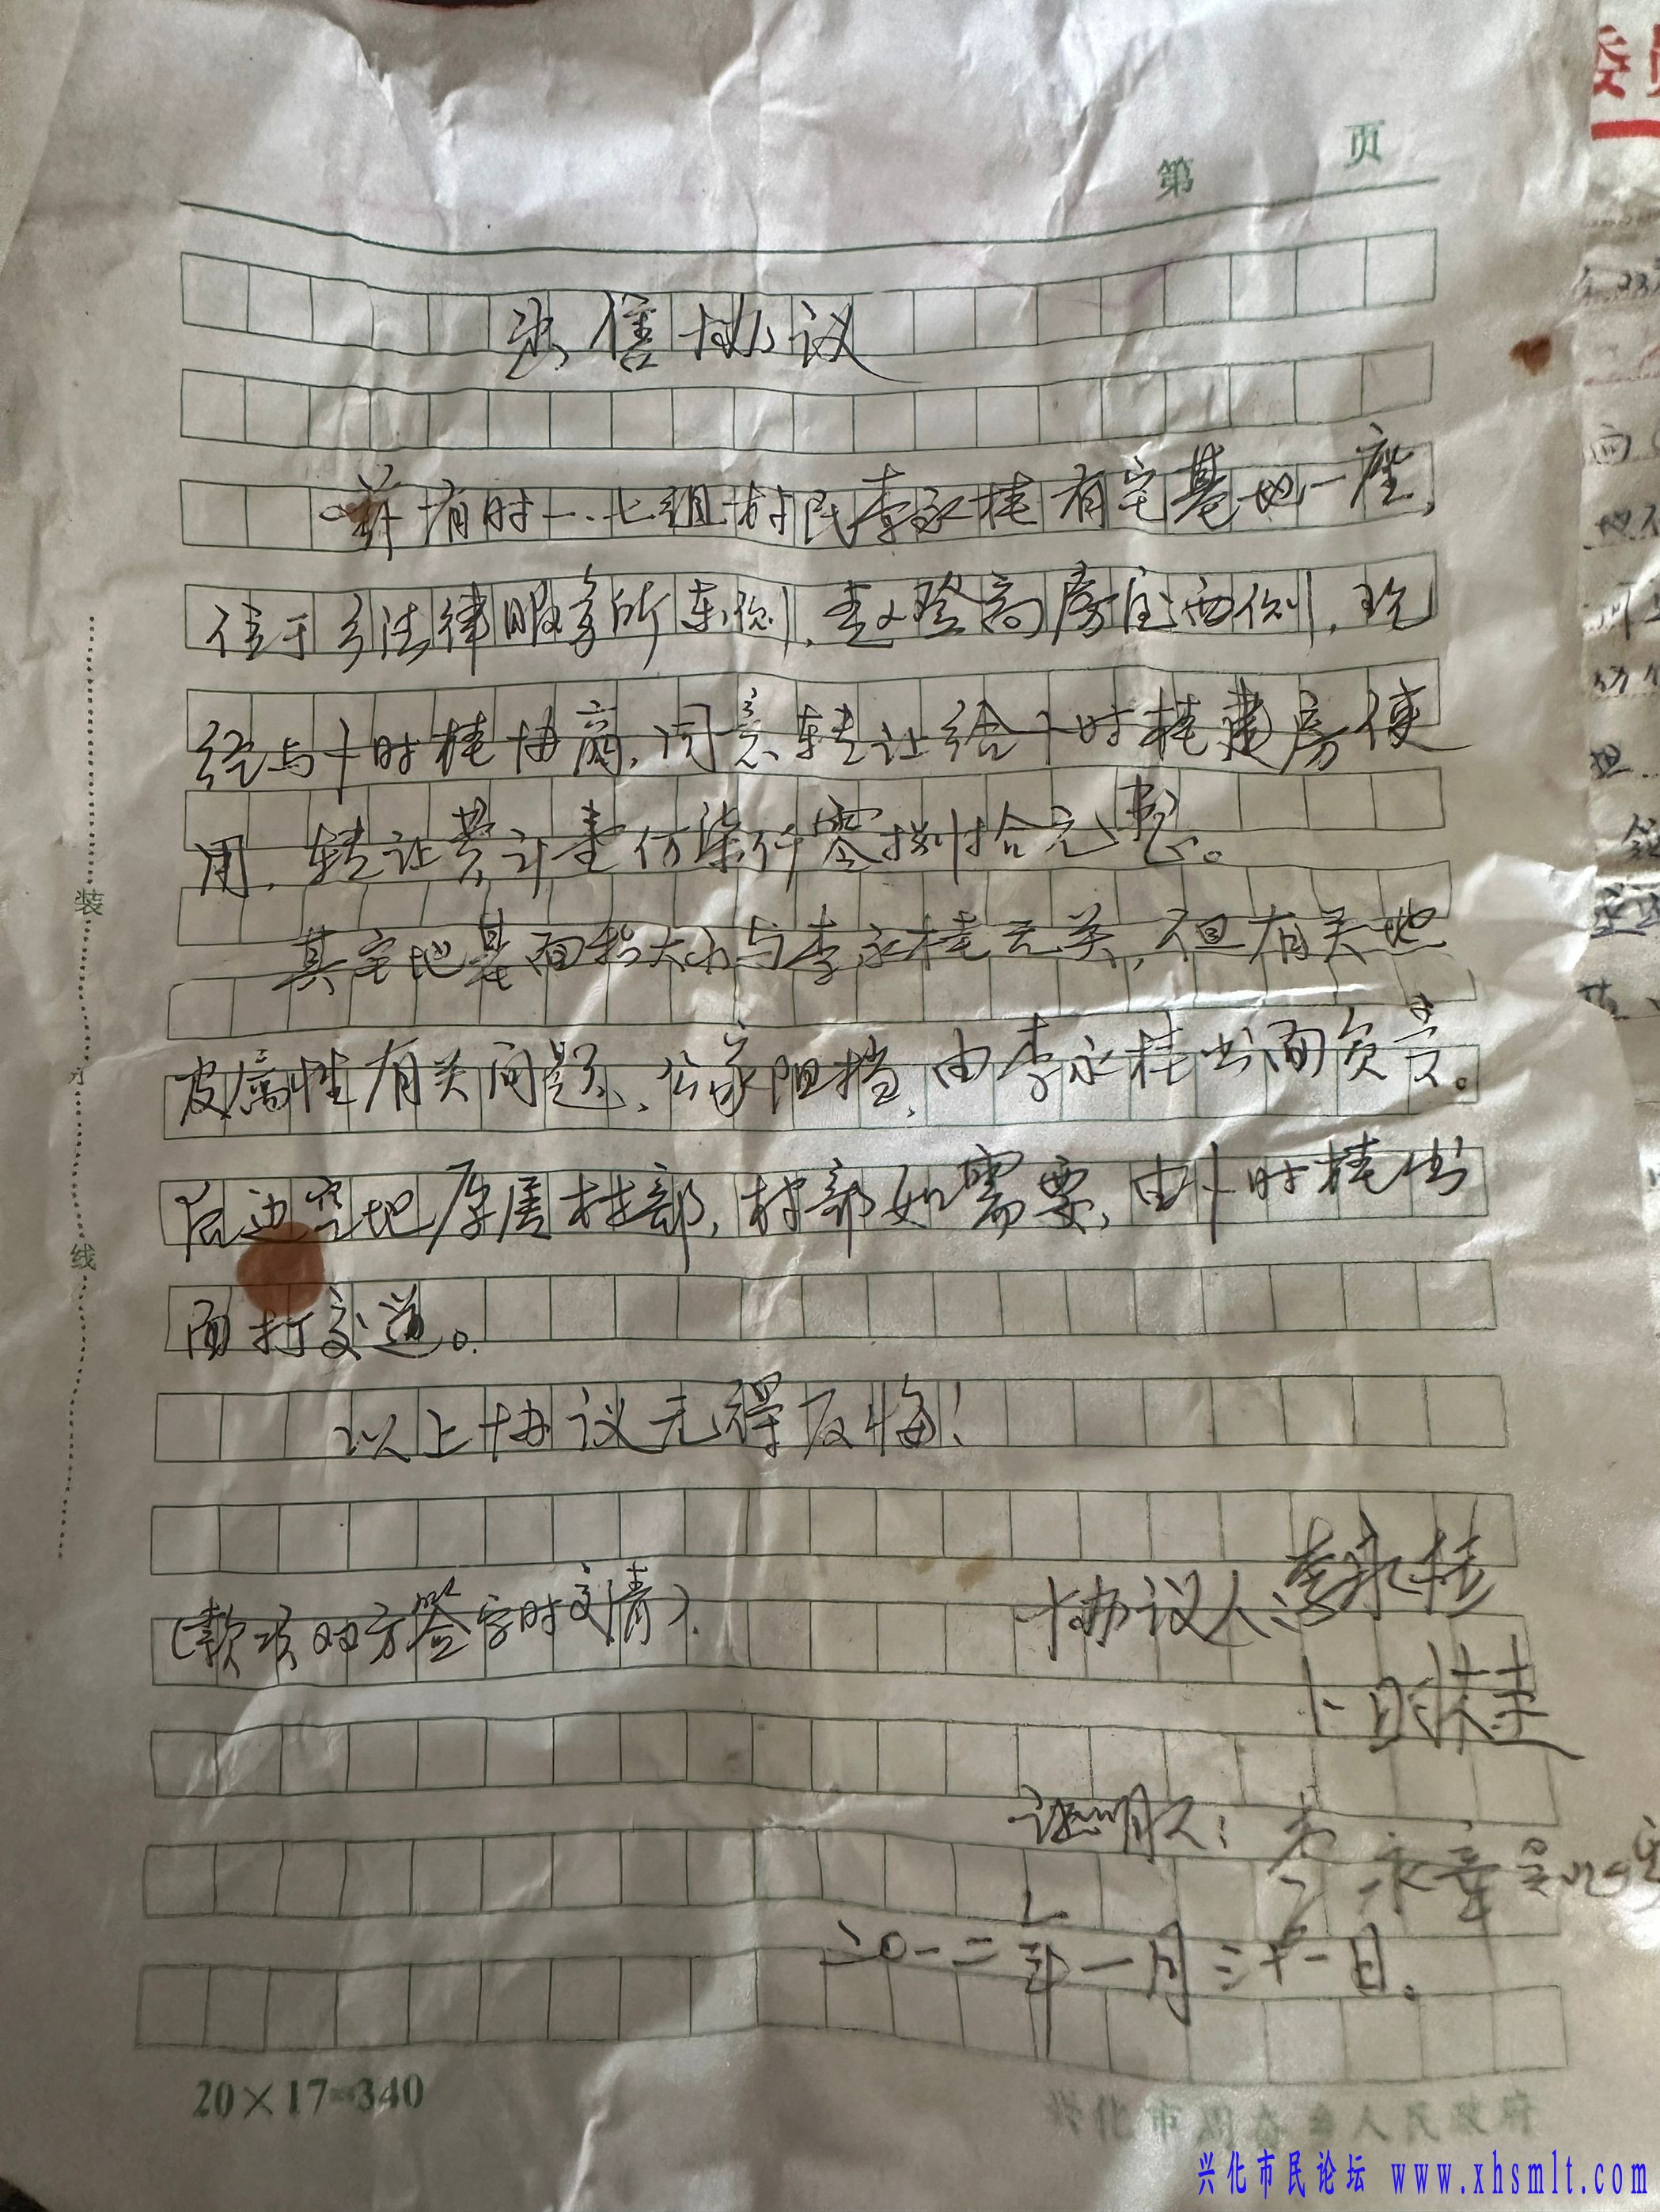 第 页
出售协议
兹有时一.七组村民李永桂有宅基地一座,
位于乡法律服务所东侧,赵登高房屋西侧,现
经与卜时桂协商,同意转让给卜时桂建房使
用,转让费计壹仟柒仟零捌拾元整。
其宅地基面积大小与李永桂无关,但有关地
皮属性有关问题、公家阻挡,由李永桂出面负责。
后边空地原属村部,村部如需要,由卜时桂出
面打交道。
以上协议无得反悔!
(款项双方签字时交清).
协议人:李永桂
卜时桂
证明人:
二〇一二年一月三十一日。
装
订
线
20×17=340
兴化市 人民政府
兴化市民论坛 www.xhsmlt.com
委员